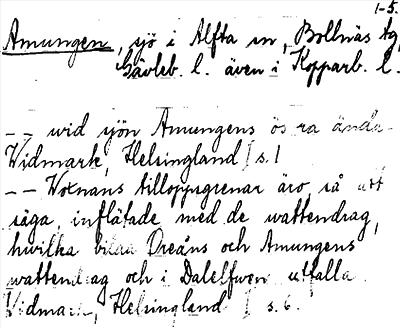 1-5.
Amungen, sjö i Alfta sn, Bollnäs tg,
Gävleb. l. även i Kopparb. l.
-- wid sjön Amungens östra ända
Widmark, Helsingland I s. 1
-- Woxnans tilloppsgrenar äro, så att
säga, inflätade med de wattendrag,
hwilka bilda Oreåns och Amungens
wattendrag och i Dalelfwen utfalla.
Widmark, Helsingland I s. 6.